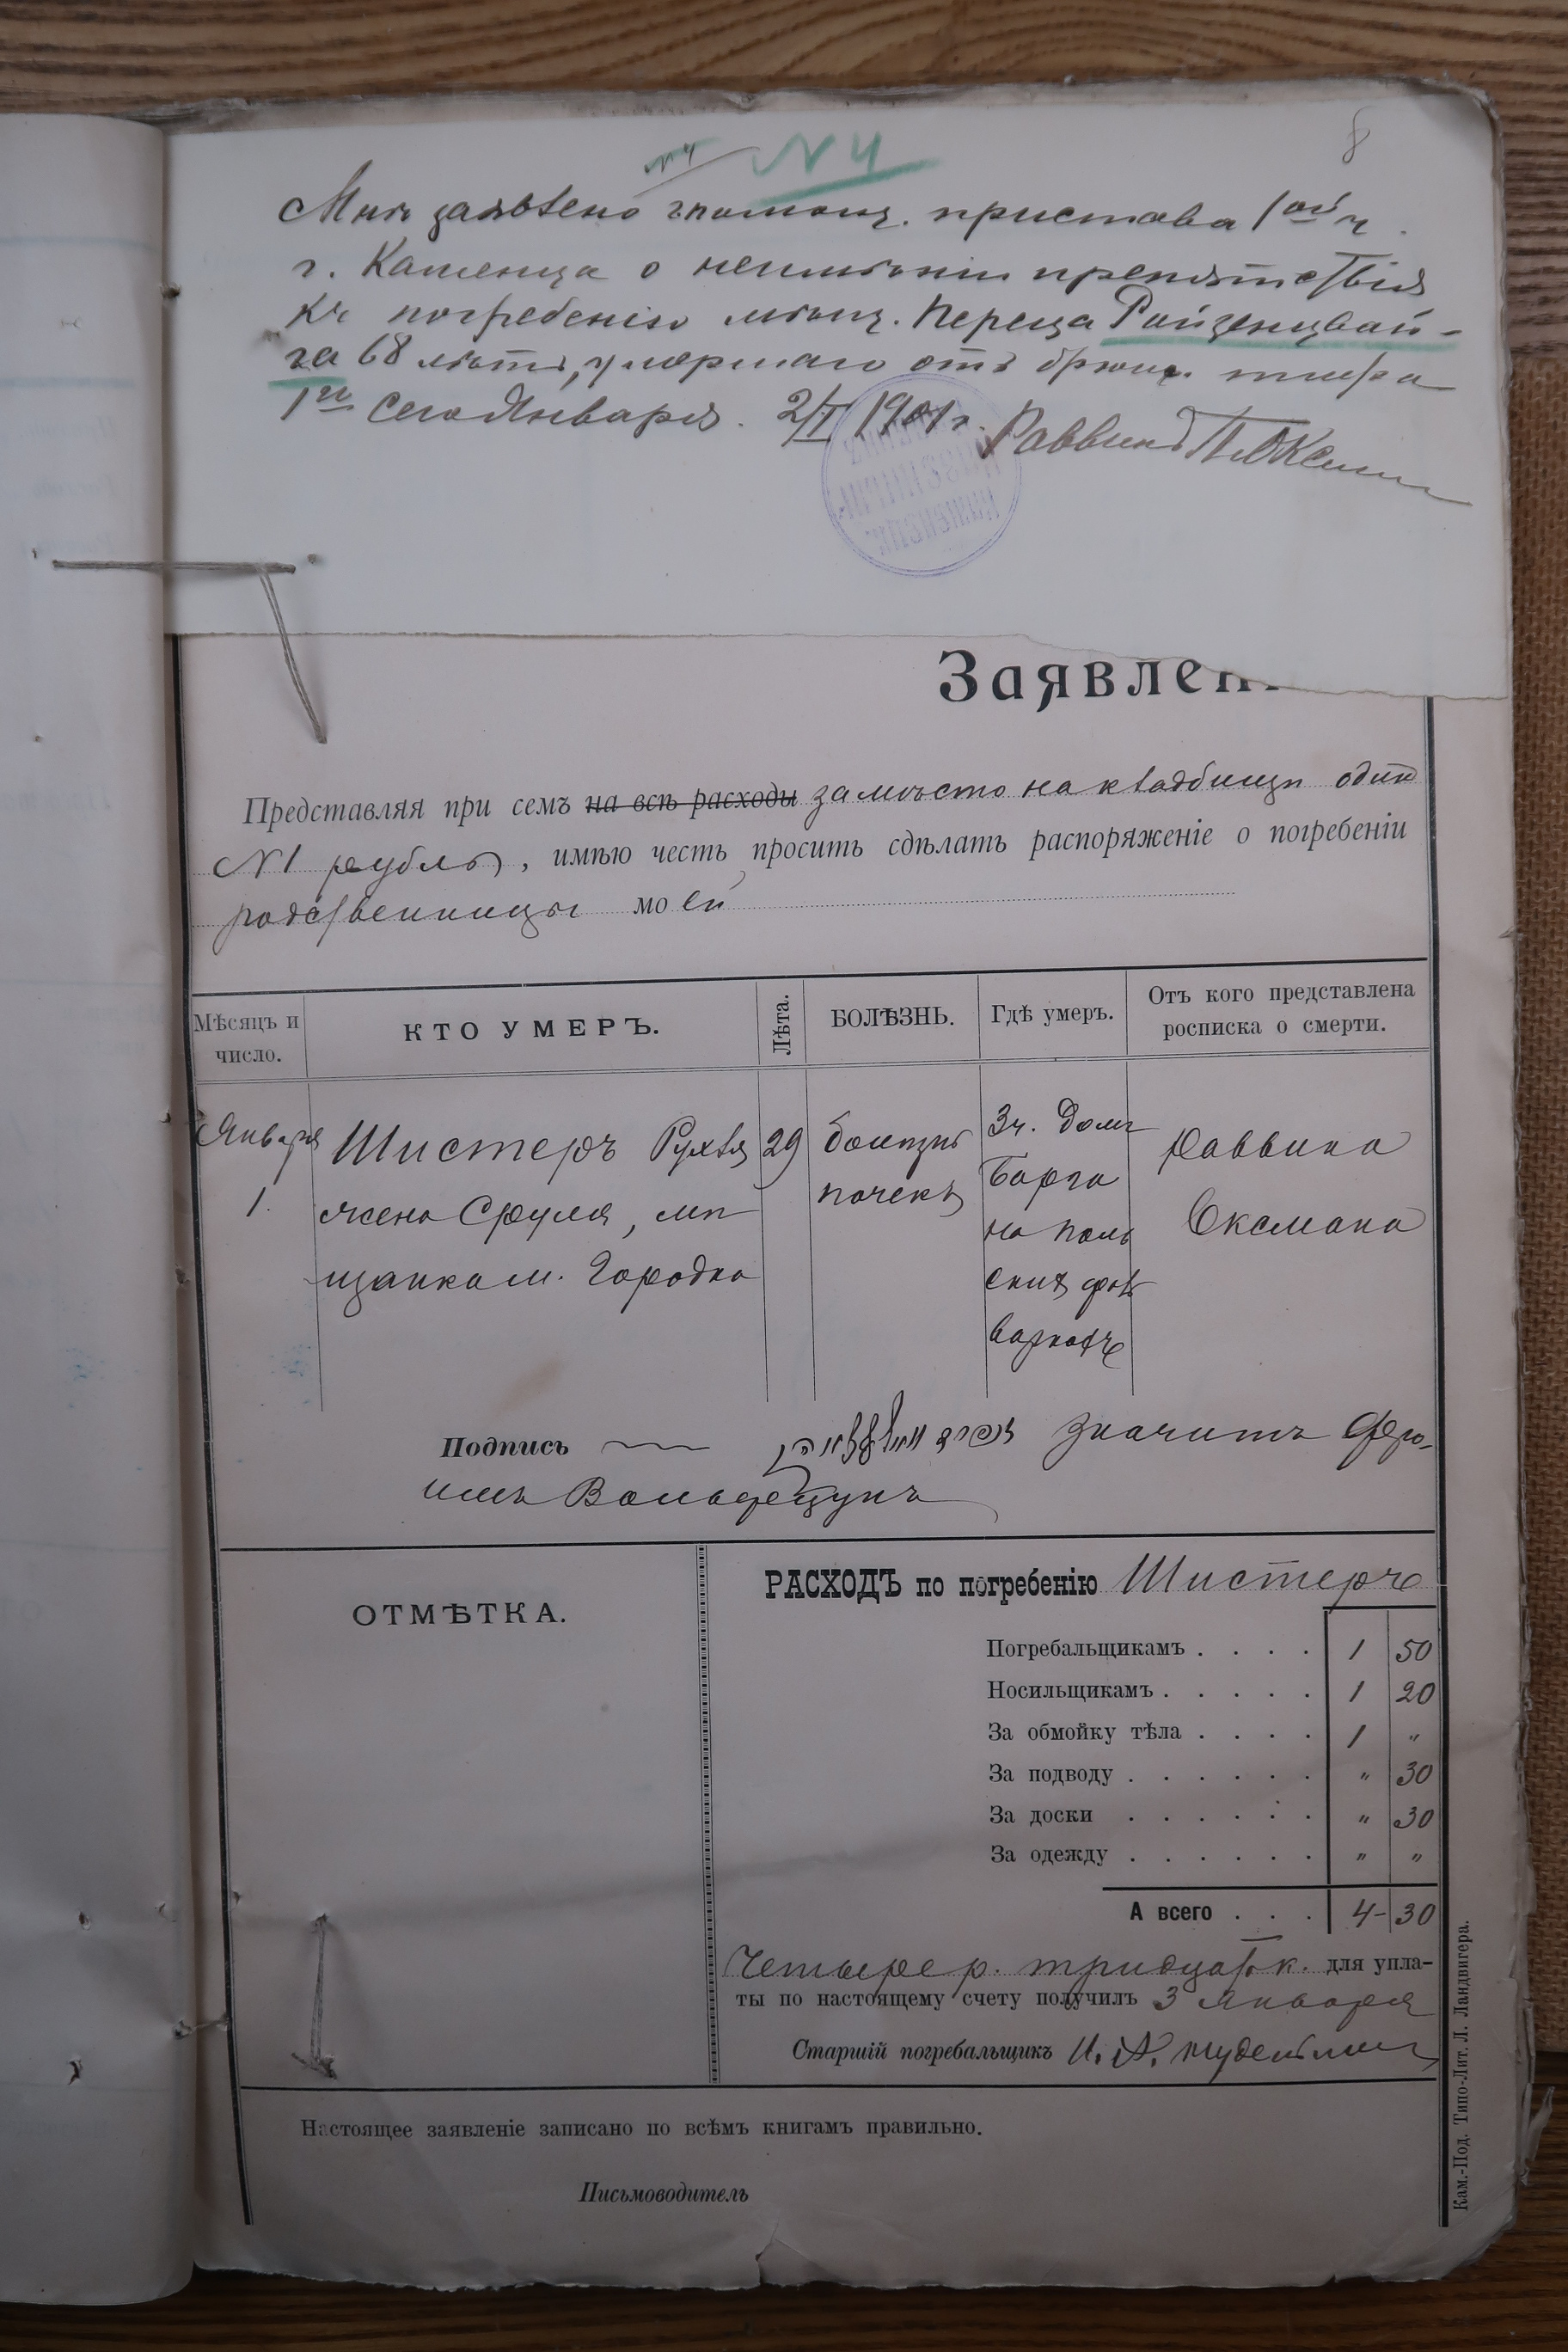 8
№ 4 № 4
Мнѣ заявлено г помощ. пристава 1ой ч.
г. Каменца о неимѣніи препятствія
къ погребенію мѣщ. Переца Райзенцвай-
га 68 лѣтъ, умершаго отъ брюш. тифа
1го сего Января. 2/I 1901 г. Раввинъ
Заявлен
Представляя при семъ на всѣ расходы за мѣсто на кладбищѣ одинъ
№1 рубль, имѣю честь просить сдѣлать распоряженіе о погребеніи
родственницы моей
Мѣсяцъ и число. КТО УМЕРЪ. Лѣта. БОЛѢЗНЬ. Гдѣ умеръ. Отъ кого представлена росписка о смерти.
Января Шистеръ Рухля 29 болѣзнь 3ч. домъ Раввина
1. жена Сруля, мѣ почекъ Барга Оксмана
щанка м. Городка на поль
скихъ фоль
варкахъ
Подпись значитъ Фро-
имъ
ОТМѢТКА.
РАСХОДЪ по погребенію Шистеръ
Погребальщикамъ . . . . 1 50
Носильщикамъ . . . . . 1 20
За обмойку тѣла . . . . 1 "
За подводу . . . . . . " 30
За доски . . . . . . " 30
За одежду . . . . . . " "
А всего . . . 4- 30
Четыре р. тридцать к. для упла-
ты по настоящему счету получилъ 3 Января
Старшій погребальщикъ
Настоящее заявленіе записано по всѣмъ книгамъ правильно.
Письмоводитель
Кам.-Под. Типо-Лит. Л. Ландвигера.